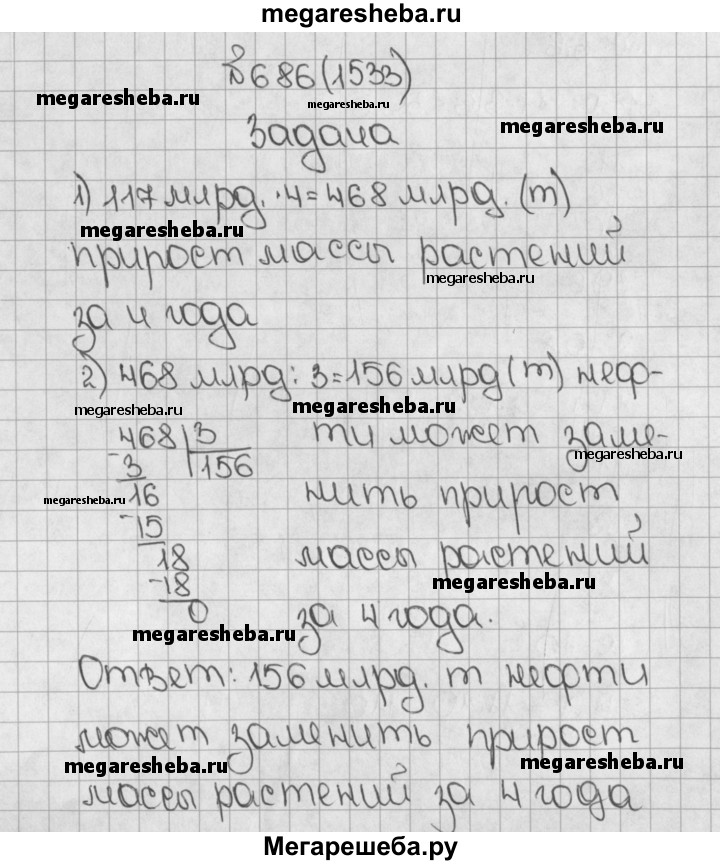 megaresheba.ru
№686(1533)
megaresheba.ru
megaresheba.ru
Задача
megaresheba.ru
1) 117 млрд. · 4 = 468 млрд. (т)
megaresheba.ru
прирост массы растений
megaresheba.ru
за 4 года
2) 468 млрд : 3 = 156 млрд (т) неф-
megaresheba.ru megaresheba.ru
468 3 ти может заме-
megaresheba.ru
- 3 156
16 нить прирост
megaresheba.ru
- 15
18 массы растений
- 18 megaresheba.ru
0 за 4 года.
megaresheba.ru
Ответ: 156 млрд. т нефти
может заменить прирост
megaresheba.ru megaresheba.ru
массы растений за 4 года
Мегарешеба.ру